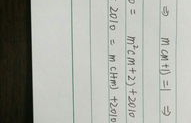 ⇒ m(m+1)=1 ⇒
0 = m²(m+2)+2010
2010 = m(1+m)+2010